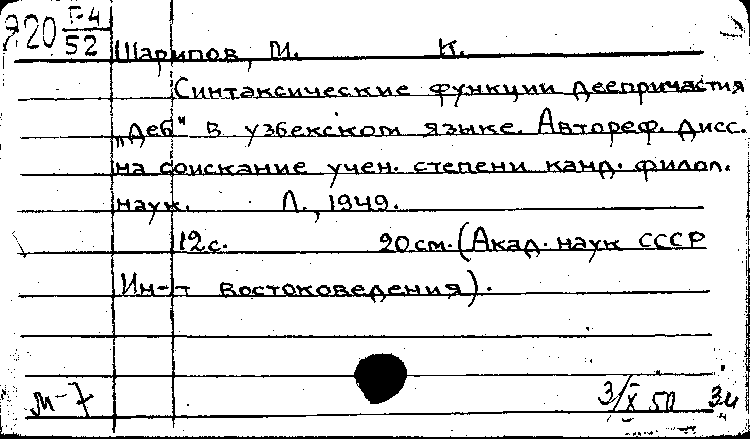 Я20 Г-4
52
Шарипов, М. К.
Синтаксические функции деепричастия
„деб" в узбекском языке. Автореф. дисс.
на соискание учен. степени канд. филол.
наук. Л., 1949.
12 с. 20 см. (Акад. наук СССР
Ин-т востоковедения).
М-7 3/X 50